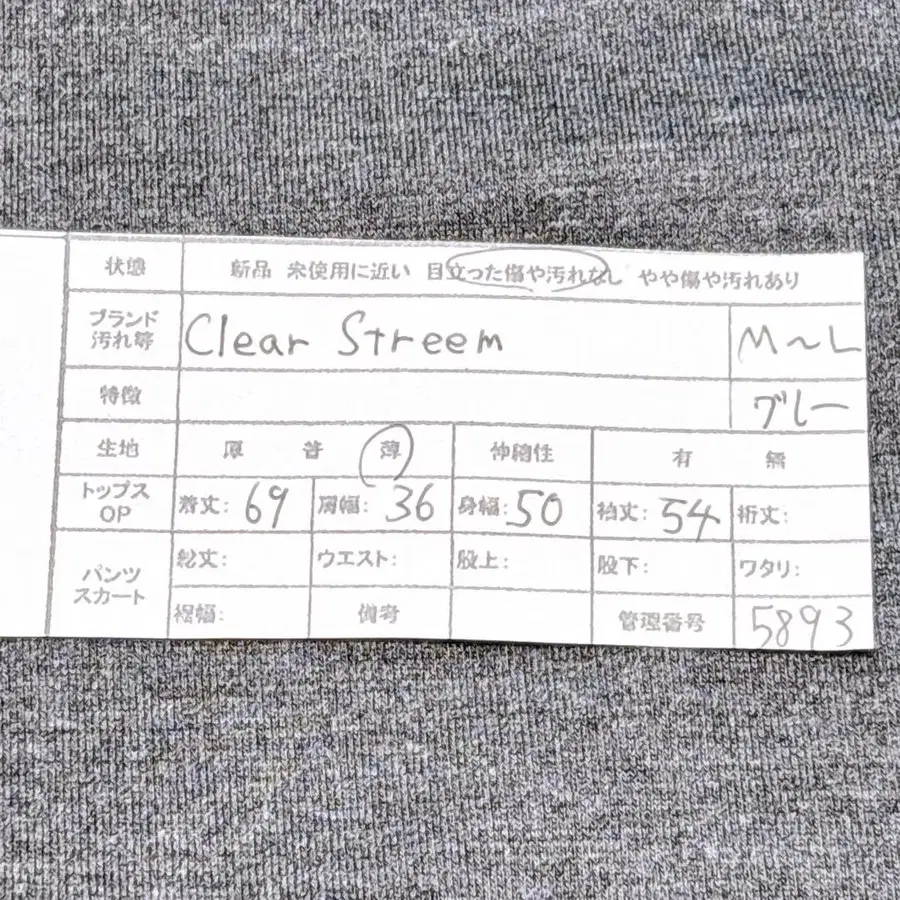 状態 新品 未使用に近い 目立った傷や汚れなし やや傷や汚れあり
ブランド 汚れ等 Clear Streem M～L
特徴 グレー
生地 厚 普 薄 伸縮性 有 無
トップス OP 着丈: 69 肩幅: 36 身幅: 50 袖丈: 54 裄丈:
パンツ スカート 総丈: ウエスト: 股上: 股下: ワタリ:
裾幅: 備考 管理番号 5893